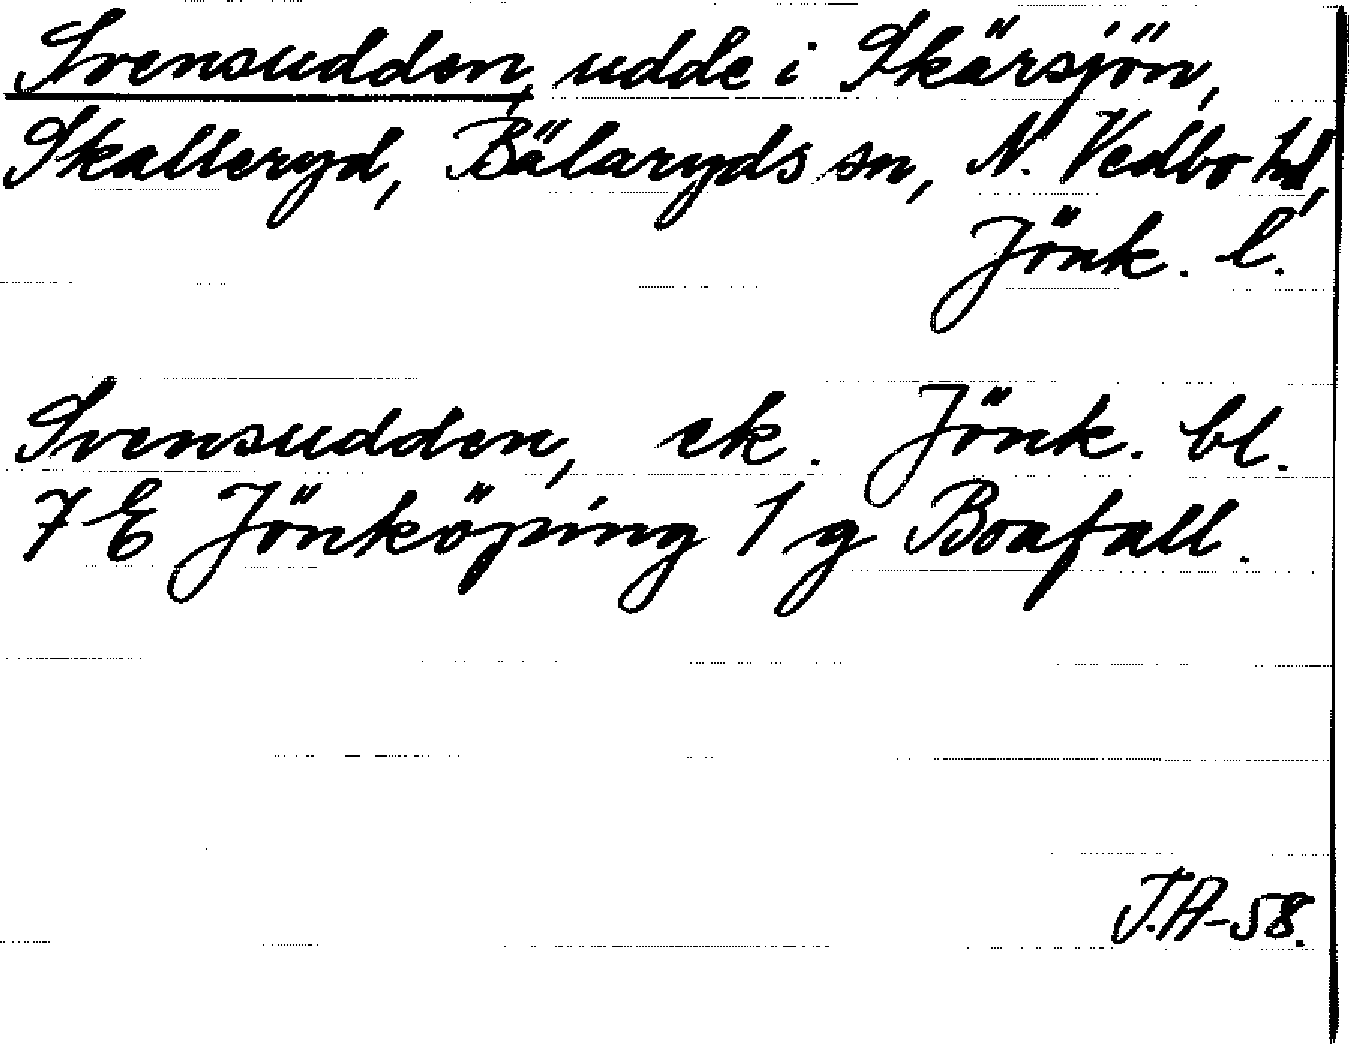 Svensudden, udde i Skärsjön,
Skalleryd, Bälaryds sn, N. Vedbo hd,
Jönk. l.
Svensudden, ek. Jönk. bl.
7 E Jönköping 1 g Boafall.
J.A-58.